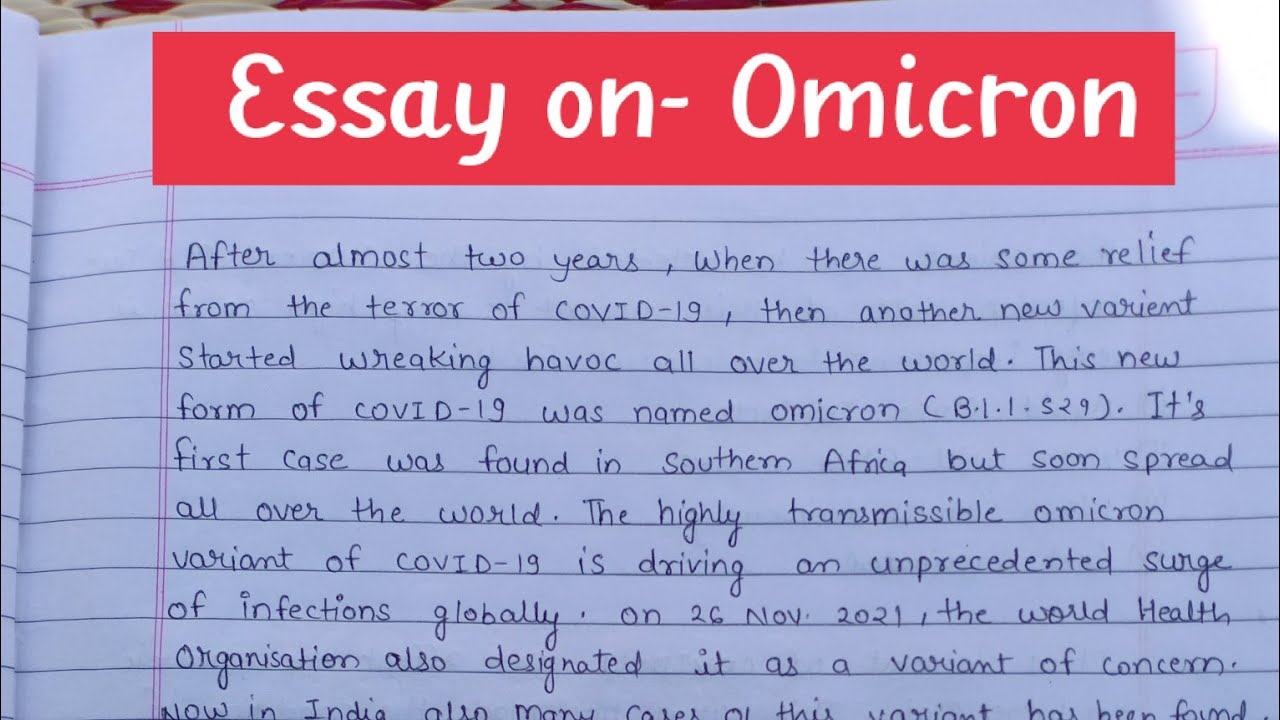 Essay on- Omicron
After almost two years, when there was some relief
from the terror of COVID-19, then another new varient
started wreaking havoc all over the world. This new
form of COVID-19 was named omicron (B.1.1.529). It's
first case was found in southern Africa but soon spread
all over the world. The highly transmissible omicron
variant of COVID-19 is driving an unprecedented surge
of infections globally. On 26 Nov. 2021, the world Health
Organisation also designated it as a variant of concern.
Now in India also many cases of this variant has been found.